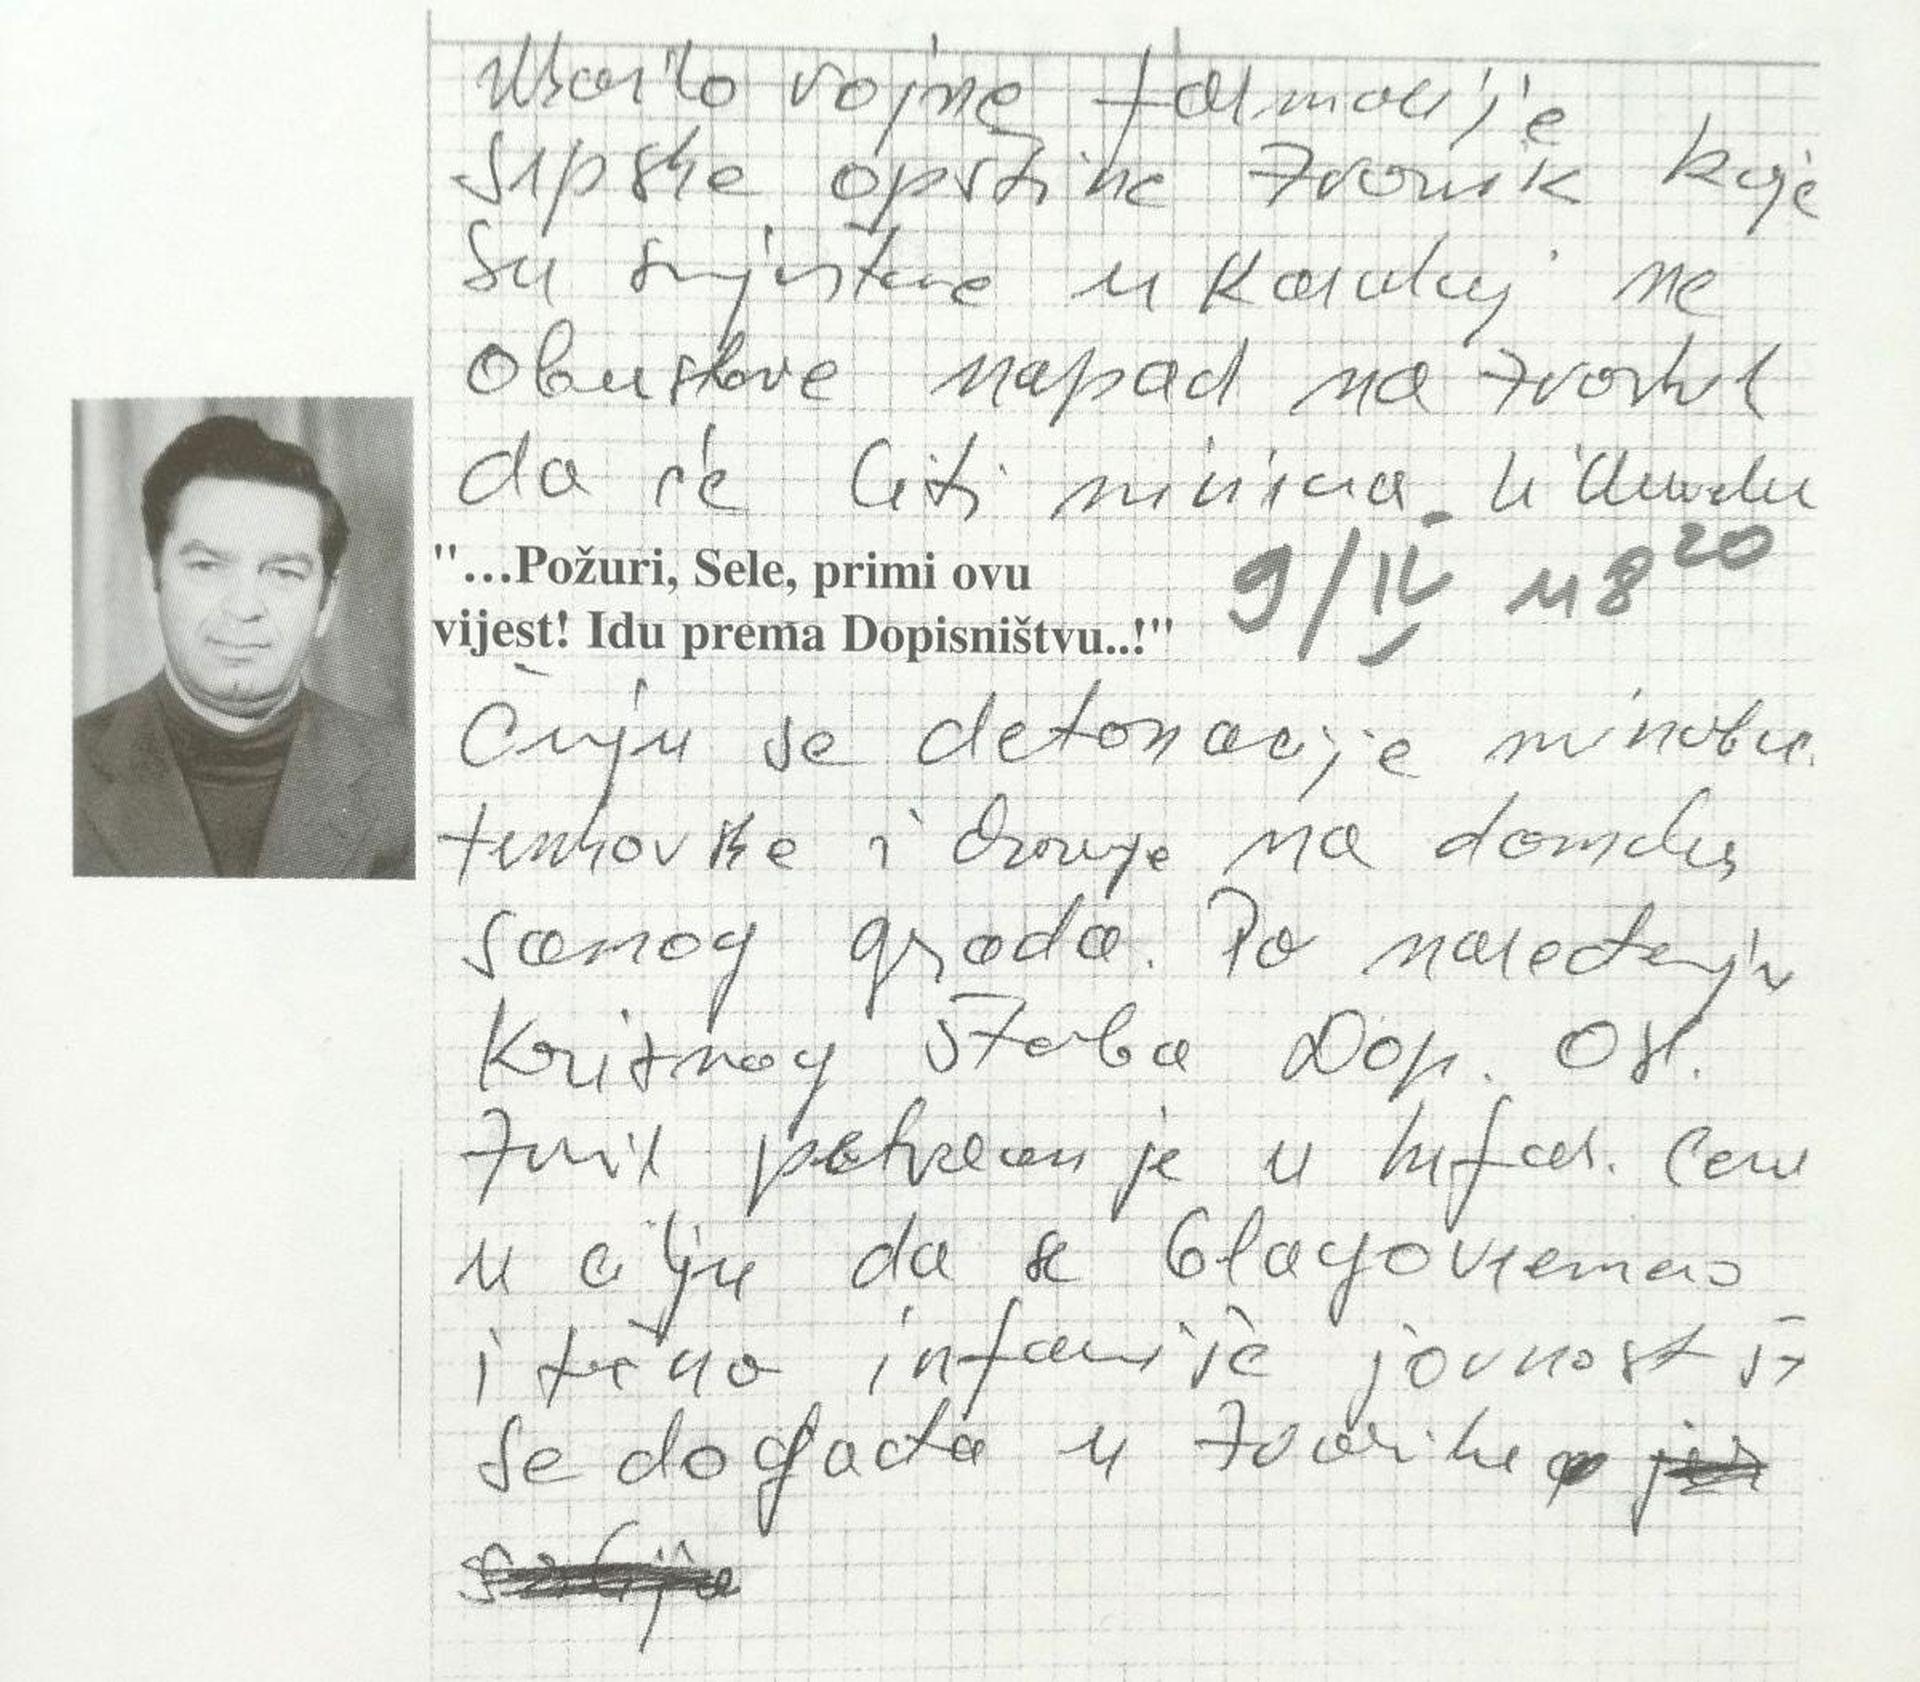 vojne formacije
srpske opštine Zvornik koje
su smještene u Karakaj ne
obustave napad na Zvornik
da će biti
"...Požuri, Sele, primi ovu
vijest! Idu prema Dopisništvu..!"
9/IV u 8 20
Čuju se detonacije minobac.
tenkovske i druge na domaku
samog grada. Po naređenju
Kriznog štaba Dop. Osl.
je u Inf. Cent
u cilju da se blagovremeno
i tačno informiše javnost št
se događa u Zvorniku